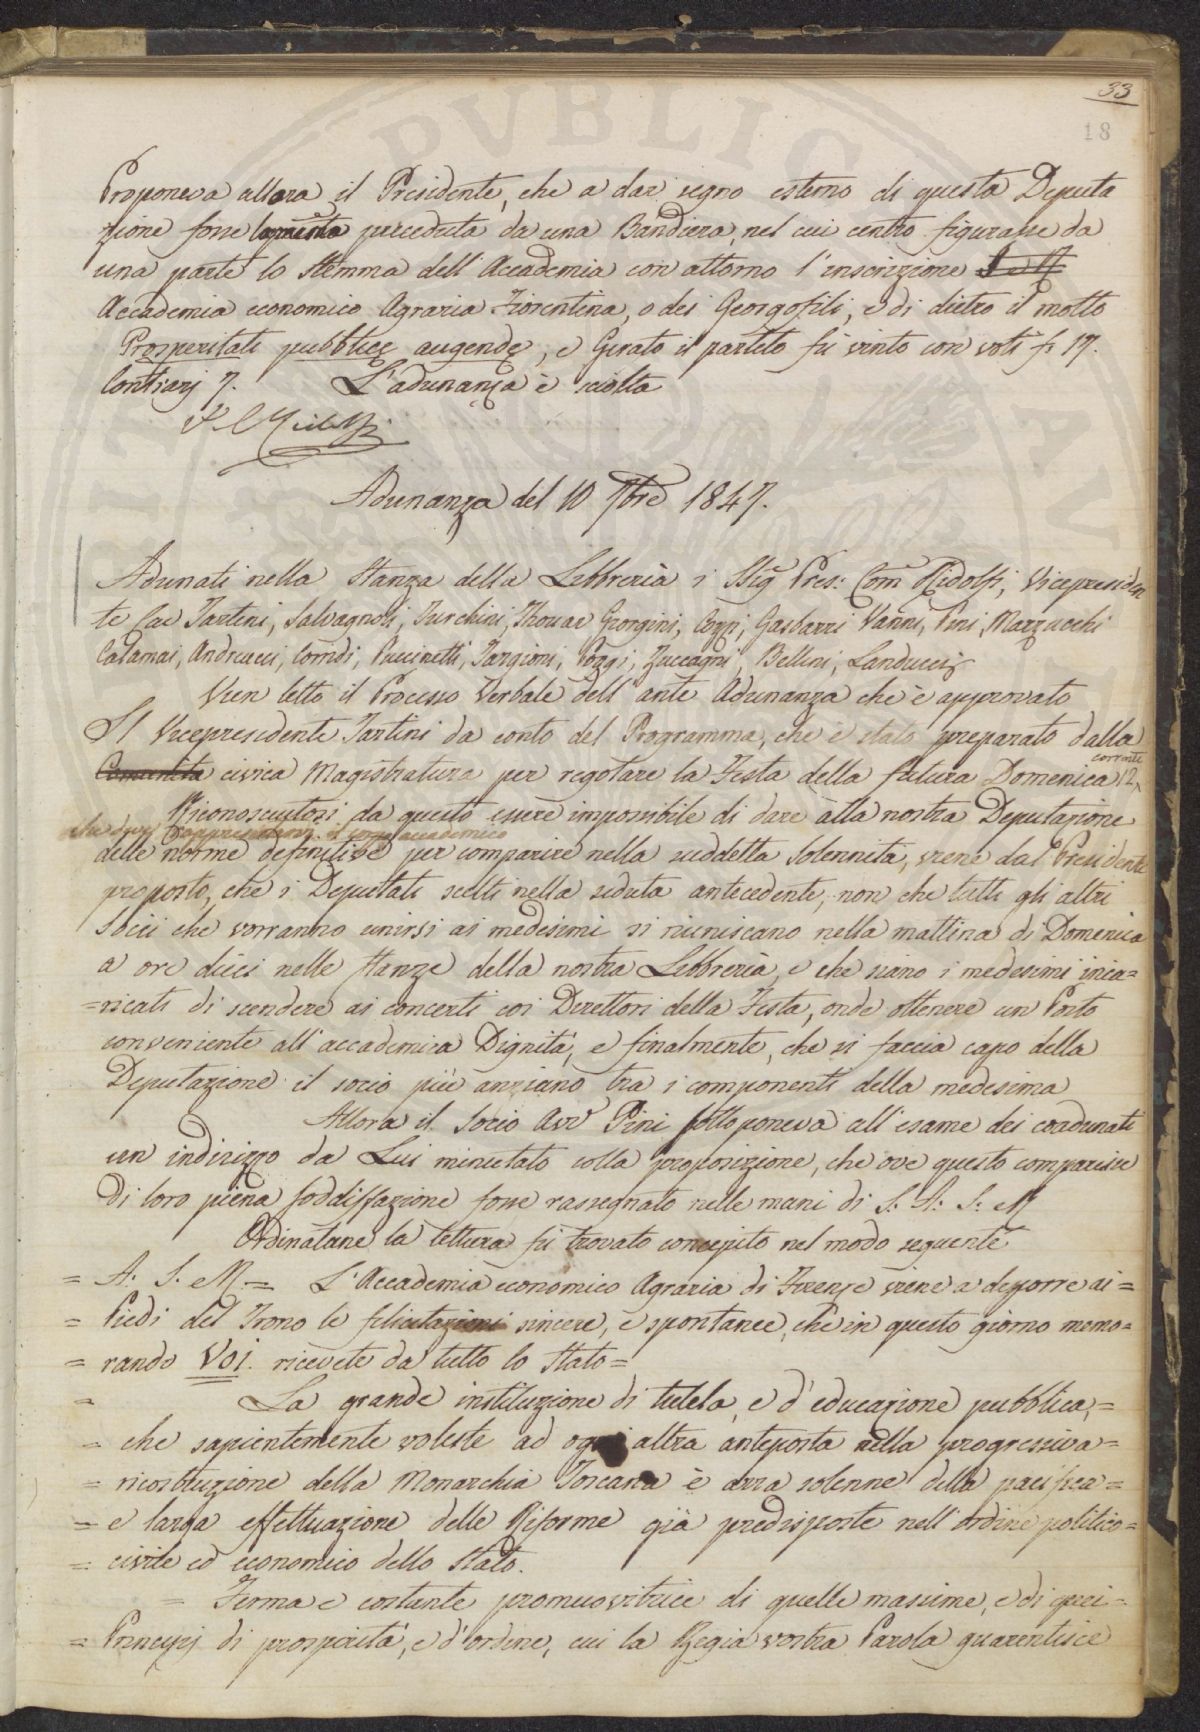 33
18
Proponeva allora il Presidente, che a dar segno esterno di questa Deputa
zione fosse la preceduta da una Bandiera, nel cui centro figurasse da
una parte lo Stemma dell'Accademia con attorno l'inscrizione
Accademia economico Agraria Fiorentina, o dei Georgofili, e di dietro il motto
Prosperitati pubblicę augendę, e Girato il partito fù vinto con voti f. 17.
Contrarj 7. L'adunanza è sciolta
Adunanza del 10 7bre 1847.
Adunati nella Stanza della Libbreria i SSig Pres: Com Ridolfi, Vicepresiden
te Cav Tartini, Salvagnoli, Turchini, Thouar Giorgini, Cozzi, Gasbarri Vanni, Pini, Marzucchi
Calamai, Andreucci, Corridi, Puccinotti, Targioni, Poggi, Zuccagni, Bellini, Landucci
Vien letto il Processo Verbale dell'ante Adunanza che è approvato
Il Vicepresidente Tartini da conto del Programma, che è stato preparato dalla
Comunità civica Magistratura per regolare la Festa della futura Domenica 12,
corrente
Riconosciutosi da questo essere impossibile di dare alla nostra Deputazione
che deve rappresentare il corpo accademico
delle norme definitive per comparire nella suddetta Solennità, viene dal Presidente
proposto, che i Deputati scelti nella seduta antecedente, non che tutti gli altri
Socii che vorranno unirsi ai medesimi si riuniscano nella mattina di Domenica
a ore dieci nelle stanze della nostra Libbreria, e che siano i medesimi inca=
=ricati di scendere ai concerti coi Direttori della Festa, onde ottenere un Posto
conveniente all'accademica Dignità, e finalmente, che si faccia capo della
Deputazione il socio più anziano tra i componenti della medesima
Allora il Socio Avv Pini sottoponeva all'esame dei coadunati
un indirizzo da Lui minutato colla proposizione, che ove questo comparisse
di loro piena soddisfazione fosse rassegnato nelle mani di S: A: I: R
Ordinatane la lettura fù trovato concepito nel modo seguente
= A. I. R = L'Accademia economico Agraria di Firenze viene a deporre ai=
= Piedi del Trono le felicitazioni sincere, e spontanee, che in questo giorno memo=
= rando Voi ricevete da tutto lo Stato=
= La grande instituzione di tutela, e d'educazione pubblica,=
= che sapientemente voleste ad ogni altra anteposta nella progressiva=
= ricostituzione della Monarchia Toscana è arra solenne della pacifica=
= e larga effettuazione delle Riforme già predisposte nell'ordine politico=
= civile ed economico dello Stato.
= Ferma e costante promuovitrice di quelle massime, e di quei=
= Principj di prosperità, e d'ordine, cui la Regia vostra Parola guarentisce